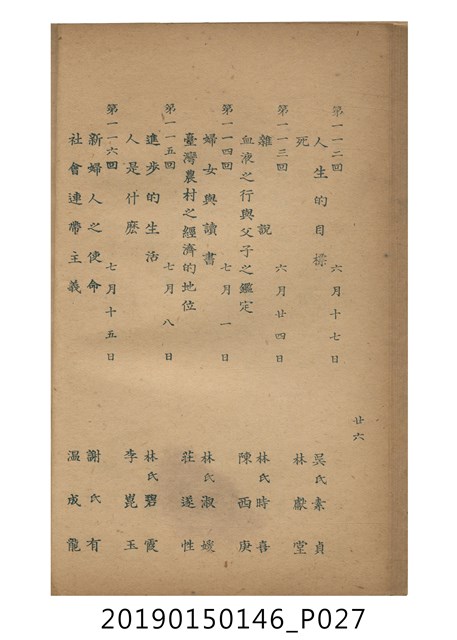 廿六
第一一二回 六月十七日
人生的目標 吳氏素貞
死 林獻堂
第一一三回 六月廿四日
雜說 林氏時喜
血液之行與父子之鑑定 陳西庚
第一一四回 七月一日
婦女與讀書 林氏淑媛
臺灣農村之經濟的地位 莊遂性
第一一五回 七月八日
進步的生活 林氏碧霞
人是什麽 李崑玉
第一一六回 七月十五日
新婦人之使命 謝氏有
社會連帶主義 溫成龍
20190150146_P027